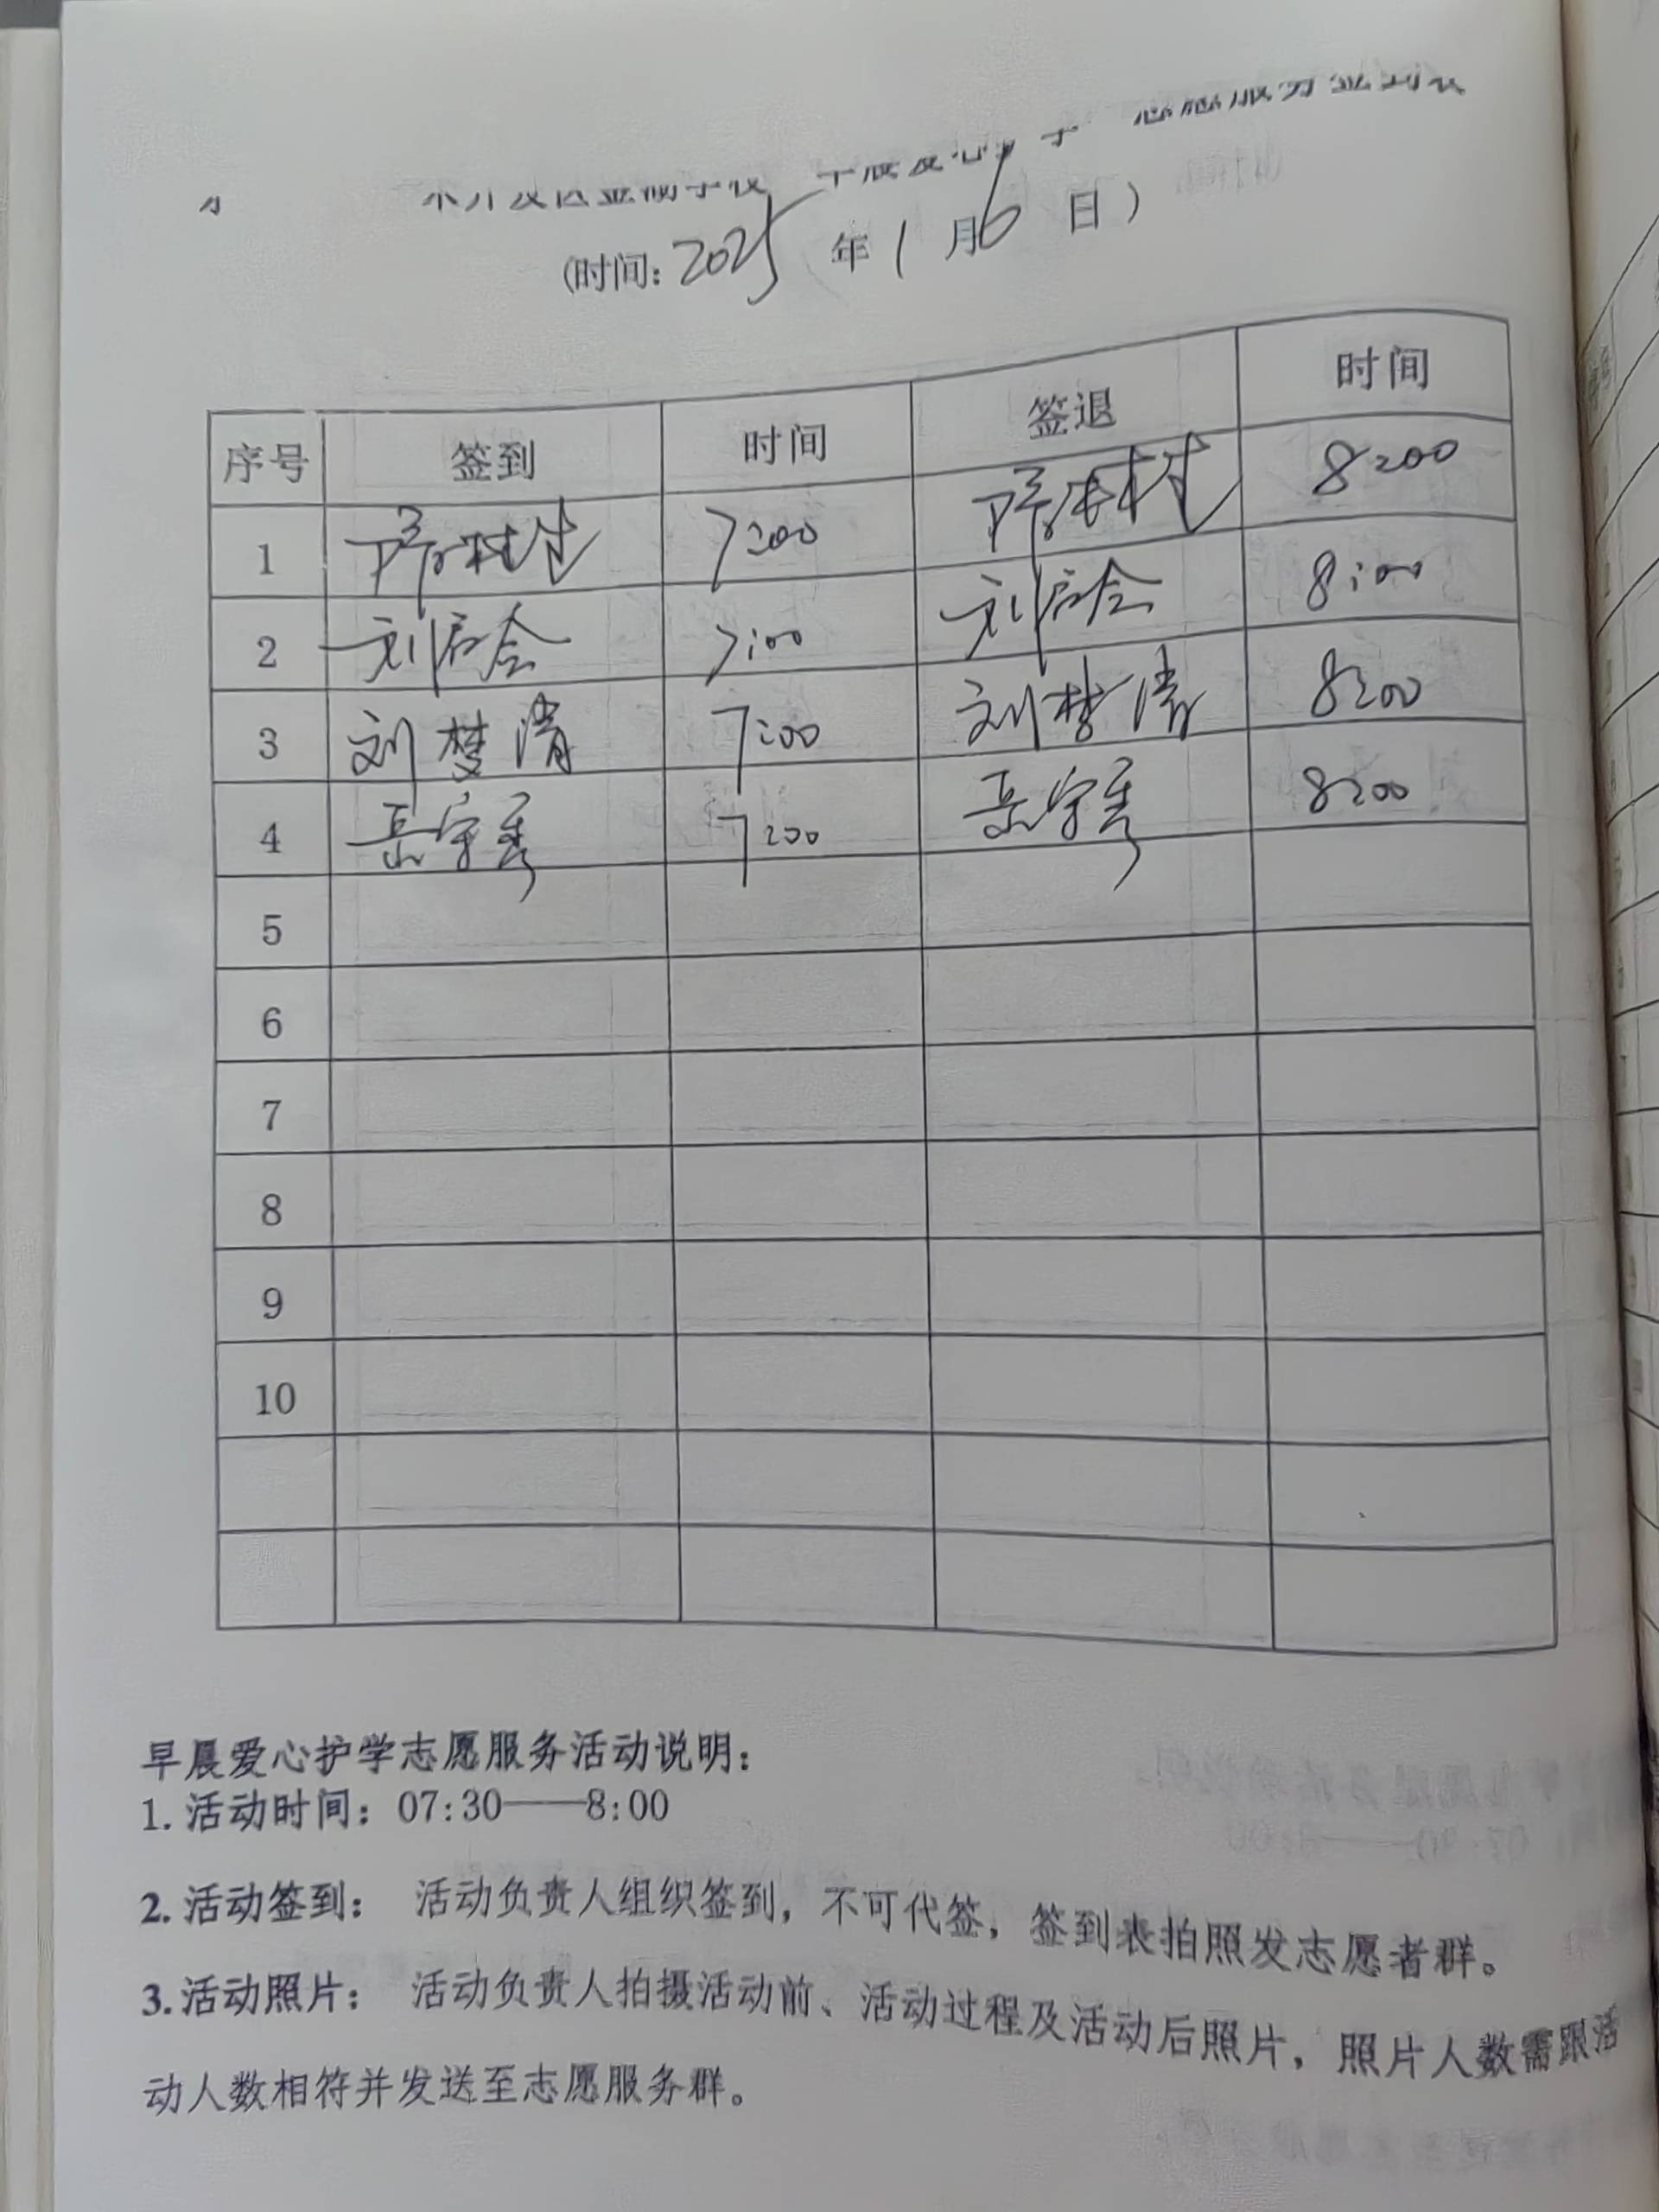 (时间: 2025 年 1 月 6 日)
序号 签到 时间 签退 时间
1 7:00 8:00
2 刘启会 7:00 刘启会 8:00
3 刘梦清 7:00 刘梦清 8:00
4 岳守秀 7:00 岳守秀 8:00
5
6
7
8
9
10
早晨爱心护学志愿服务活动说明:
1. 活动时间: 07:30——8:00
2. 活动签到: 活动负责人组织签到, 不可代签, 签到表拍照发志愿者群。
3. 活动照片: 活动负责人拍摄活动前、活动过程及活动后照片, 照片人数需跟活
动人数相符并发送至志愿服务群。